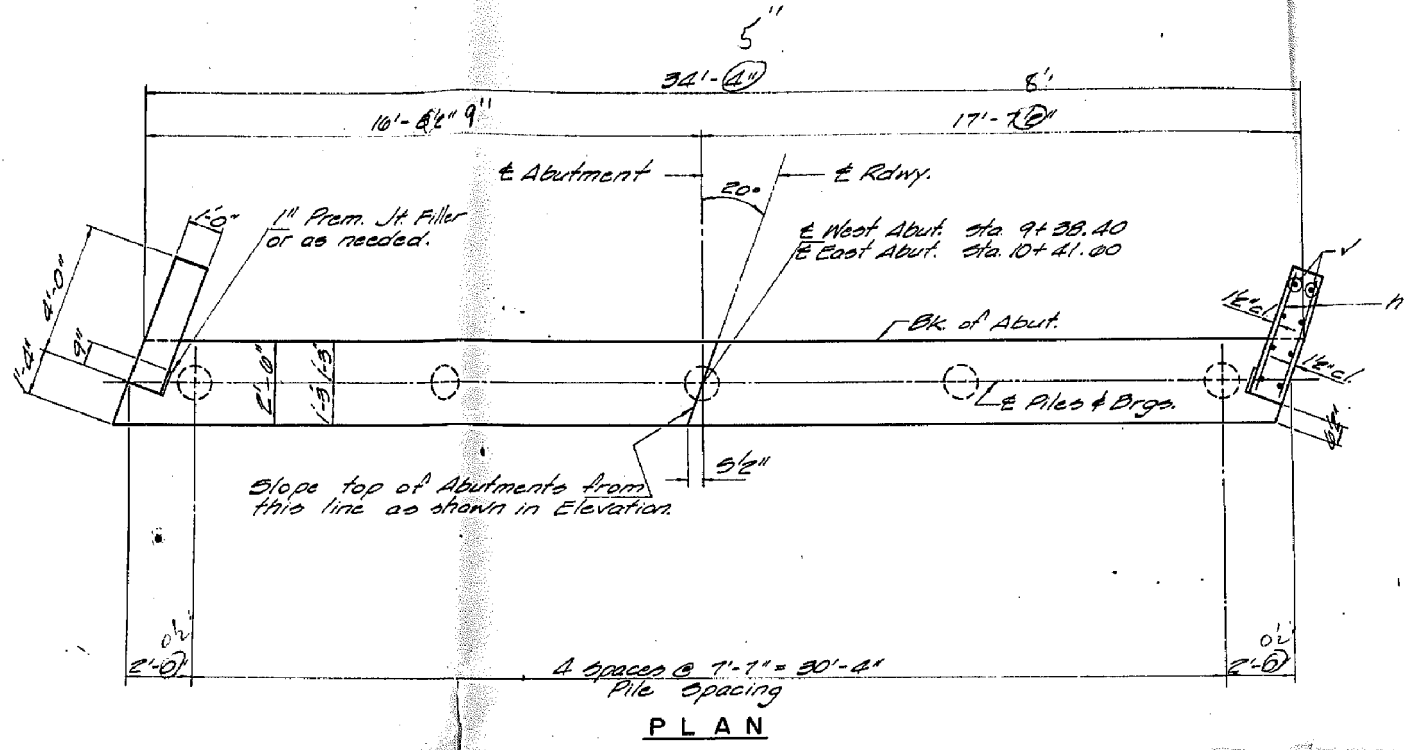 5"
34'-4"
8'
16'-8½" 9"
17'-7
℄ Abutment
℄ Rdwy.
20°
1'-0"
1" Prem. Jt. Filler
or as needed.
℄ West Abut. Sta. 9+38.40
℄ East Abut. Sta. 10+41.60
4'-0"
v
h
1½" cl.
Bk. of Abut.
1'-4"
9"
2'-6"
1'-3 1'-3"
1½" cl.
℄ Piles & Brgs.
6½"
5½"
Slope top of Abutments from
this line as shown in Elevation.
0½"
0½"
2'-0"
4 spaces @ 7'-7" = 30'-4"
2'-0"
Pile spacing
PLAN